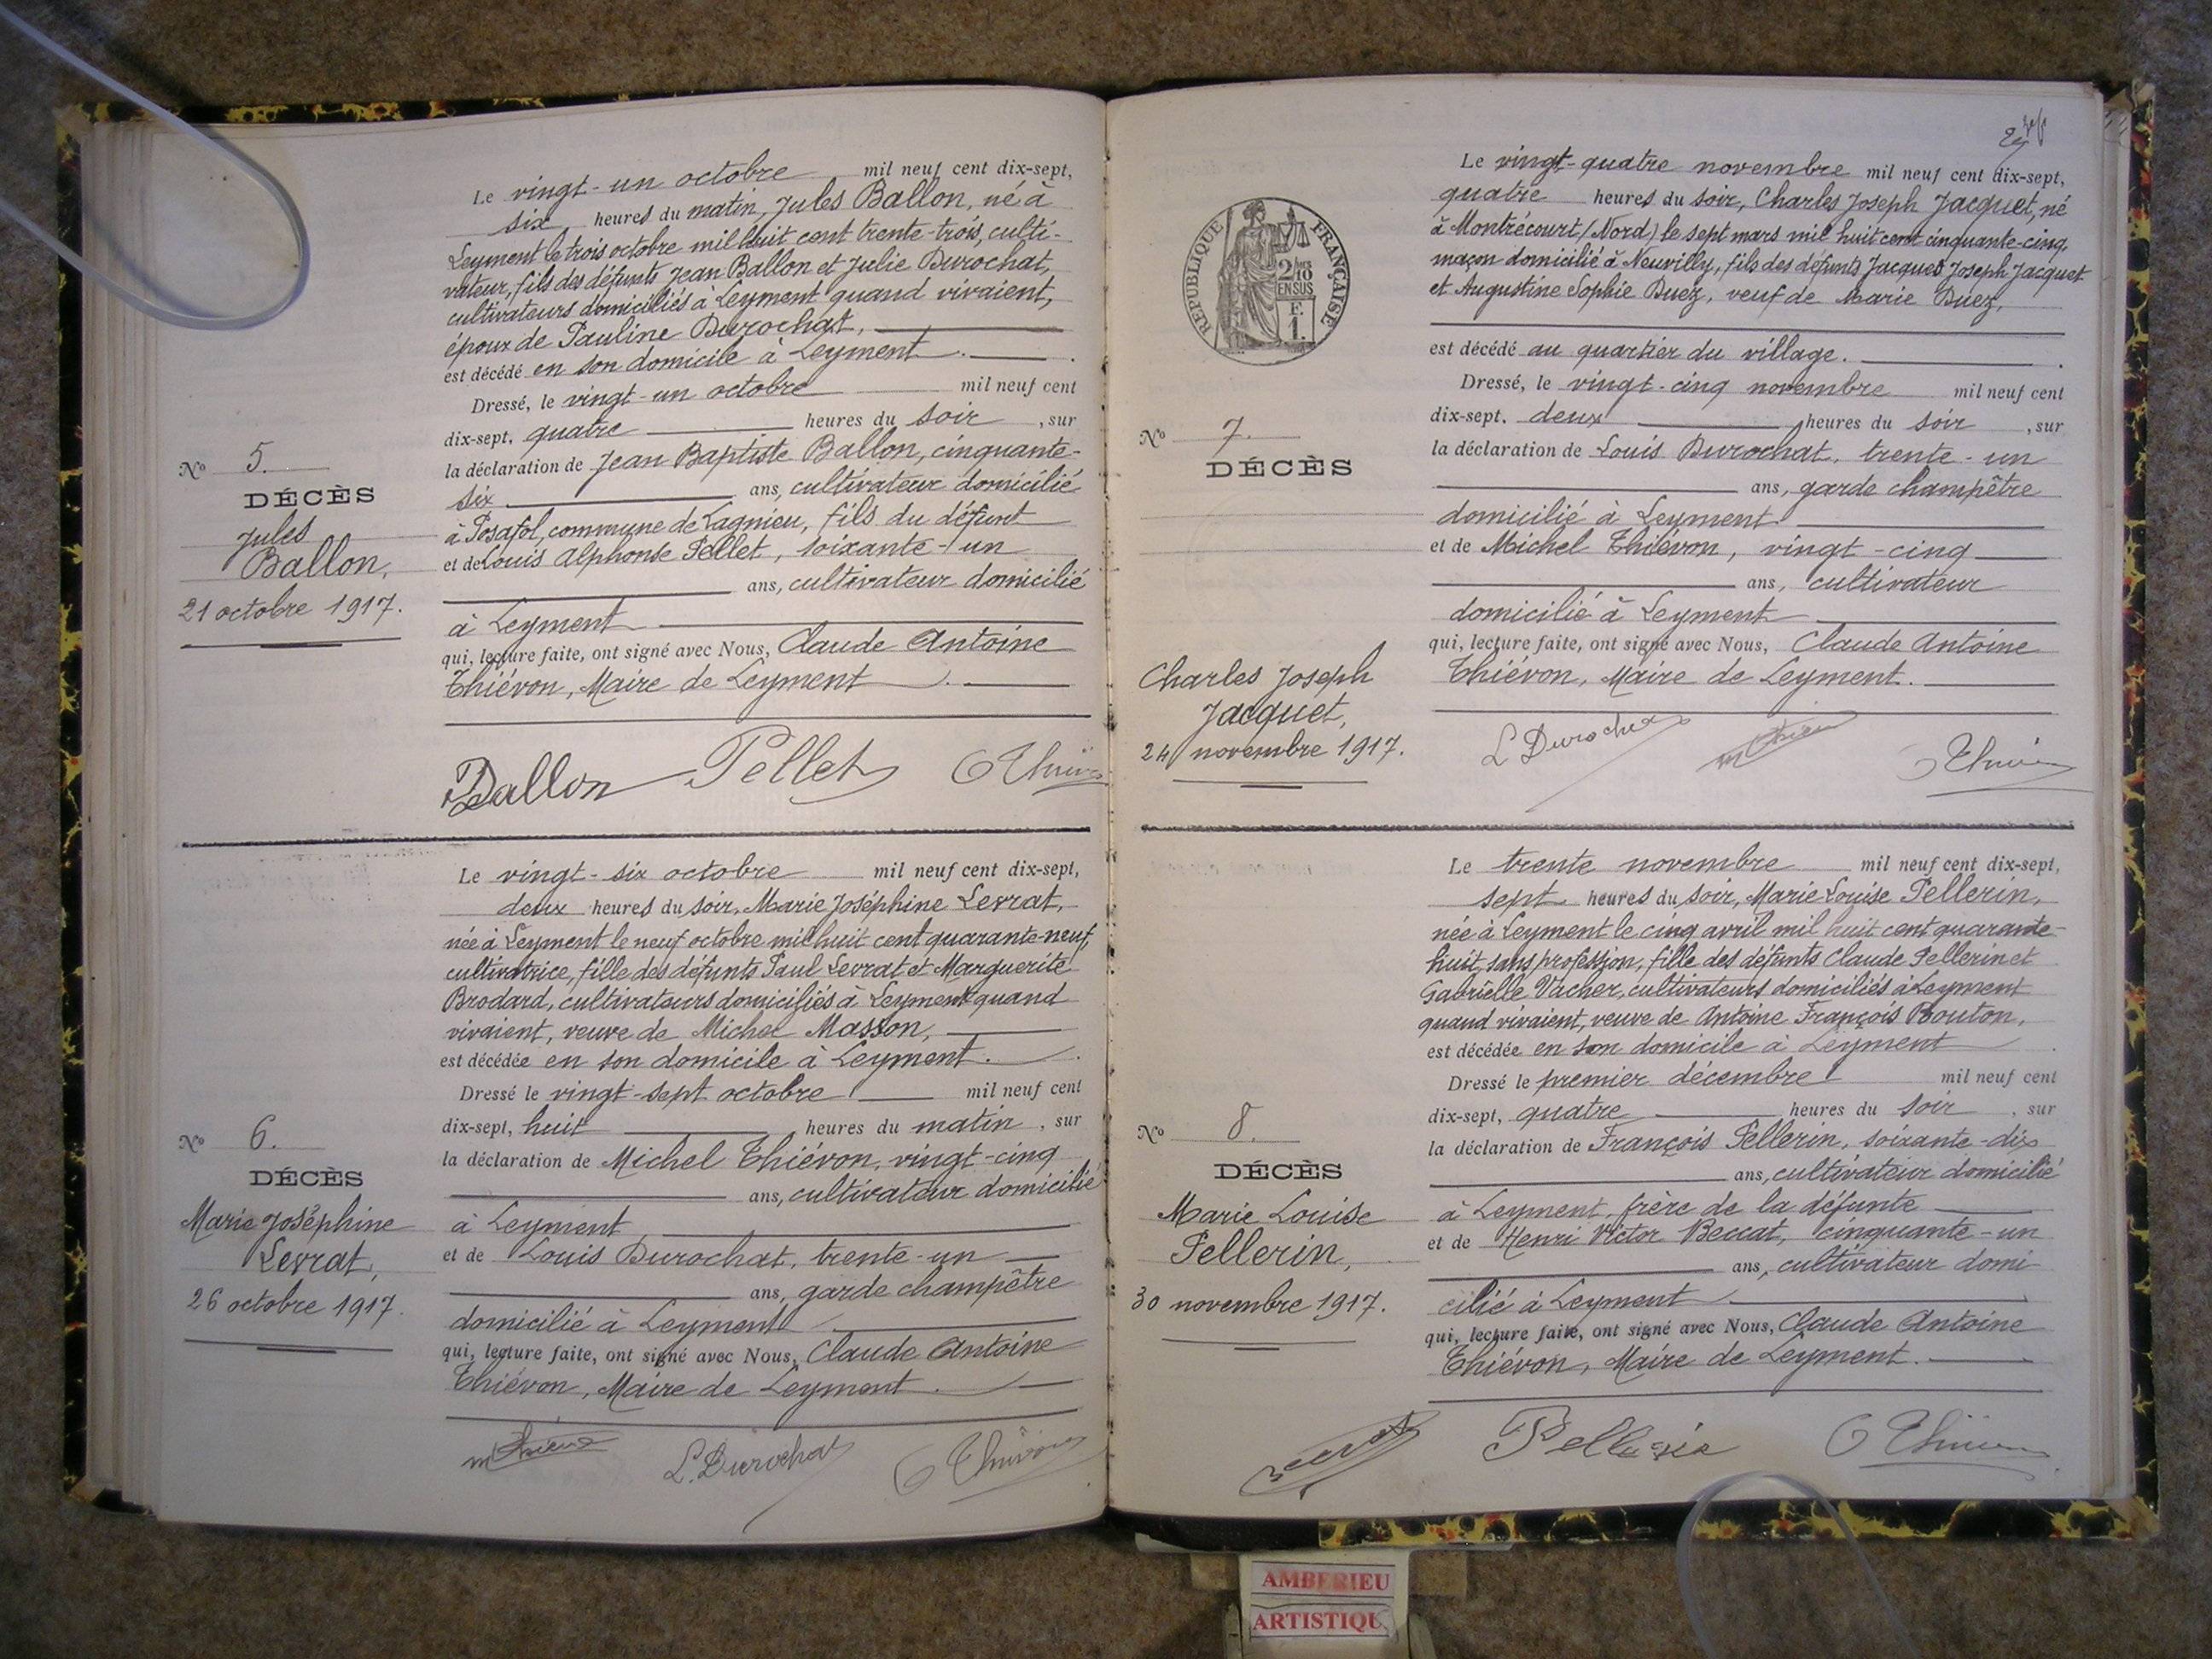 Le vingt-un octobre mil neuf cent dix-sept,
six heures du matin, Jules Ballon, né à
Leyment le trois octobre mil huit cent trente-trois, culti-
vateur, fils des défunts Jean Ballon et Julie Durochat,
cultivateurs domiciliés à Leyment quand vivaient,
époux de Pauline Durochat,
est décédé en son domicile à Leyment.
Dressé, le vingt-un octobre mil neuf cent
dix-sept, quatre heures du soir, sur
la déclaration de Jean Baptiste Ballon, cinquante-
six ans, cultivateur domicilié
à Posafol, commune de Lagnieu, fils du défunt
et de Louis Alphonse Pellet, soixante-un
ans, cultivateur domicilié
à Leyment
qui, lecture faite, ont signé avec Nous, Claude Antoine
Thiévon, Maire de Leyment.
Nº 5.
DÉCÈS
Jules
Ballon,
21 octobre 1917.
Ballon Pellet
Le vingt-six octobre mil neuf cent dix-sept,
deux heures du soir, Marie Joséphine Levrat,
née à Leyment le neuf octobre mil huit cent quarante-neuf,
cultivatrice, fille des défunts Paul Levrat et Marguerite
Brodard, cultivateurs domiciliés à Leyment quand
vivaient, veuve de Michel Masson,
est décédée en son domicile à Leyment.
Dressé le vingt-sept octobre mil neuf cent
dix-sept, huit heures du matin, sur
la déclaration de Michel Thiévon, vingt-cinq
ans, cultivateur domicilié
à Leyment
et de Louis Durochat, trente-un
ans, garde champêtre
domicilié à Leyment
qui, lecture faite, ont signé avec Nous, Claude Antoine
Thiévon, Maire de Leyment.
Nº 6.
DÉCÈS
Marie Joséphine
Levrat,
26 octobre 1917.
L. Durochat
RÉPUBLIQUE FRANÇAISE
2/10
EN SUS
F.
1.
Le vingt-quatre novembre mil neuf cent dix-sept,
quatre heures du soir, Charles Joseph Jacquet, né
à Montrécourt (Nord) le sept mars mil huit cent cinquante-cinq
maçon domicilié à Neuvilly, fils des défunts Jacques Joseph Jacquet
et Augustine Sophie Duez, veuf de Marie Duez,
est décédé au quartier du village.
Dressé, le vingt-cinq novembre mil neuf cent
dix-sept. deux heures du soir, sur
la déclaration de Louis Durochat, trente-un
ans, garde champêtre
domicilié à Leyment
et de Michel Thiévon, vingt-cinq
ans, cultivateur
domicilié à Leyment
qui, lecture faite, ont signé avec Nous, Claude Antoine
Thiévon, Maire de Leyment.
Nº 7.
DÉCÈS
Charles Joseph
Jacquet,
24 novembre 1917.
L Durochat
Le trente novembre mil neuf cent dix-sept,
sept heures du soir, Marie Louise Pellerin,
née à Leyment le cinq avril mil huit cent quarante-
huit, sans profession, fille des défunts Claude Pellerin et
Gabrielle Vacher, cultivateurs domiciliés à Leyment
quand vivaient, veuve de Antoine François Bouton,
est décédée en son domicile à Leyment
Dressé le premier décembre mil neuf cent
dix-sept, quatre heures du soir, sur
la déclaration de François Pellerin, soixante-dix
ans, cultivateur domicilié
à Leyment, frère de la défunte
et de Henri Victor Beccat, cinquante-un
ans, cultivateur domi
cilié à Leyment
qui, lecture faite, ont signé avec Nous, Claude Antoine
Thiévon, Maire de Leyment.
Nº 8.
DÉCÈS
Marie Louise
Pellerin,
30 novembre 1917.
Pellerin
AMBERIEU
ARTISTIQU